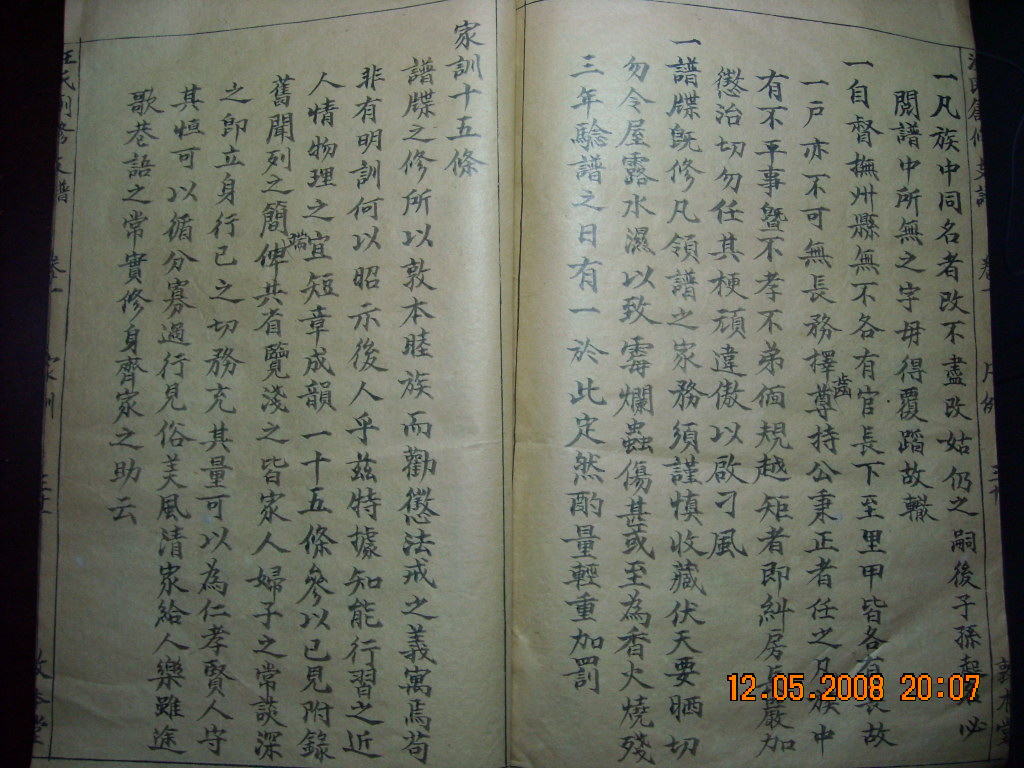 一凡族中同名者改不盡改姑仍之嗣後子孫起名必
閱譜中所無之字毋得覆蹈故轍
一自督撫州縣無不各有官長下至里甲皆各有長故
一戶亦不可無長務擇尊齒持公秉正者任之凡族中
有不平事曁不孝不弟偭規越矩者即糾房長嚴加
懲治切勿任其梗頑違傲以啟刁風
一譜牒旣修凡領譜之家務須謹慎收藏伏天要晒切
勿令屋露水濕以致霉爛蟲傷甚或至為香火燒殘
三年驗譜之日有一於此定然酌量輕重加罰
家訓十五條
譜牒之修所以敦本睦族而勸懲法戒之義寓焉苟
非有明訓何以昭示後人乎茲特據知能行習之近
人情物理之宜短章成韻一十五條參以已見附錄
舊聞列之簡端俾共省覽淺之皆家人婦子之常談深
之卽立身行已之切務充其量可以為仁孝賢人守
其恒可以循分寡過行見俗美風清家給人樂雖途
歌巷語之常實修身齊家之助云
卷一
家訓
12.05.2008 20:07